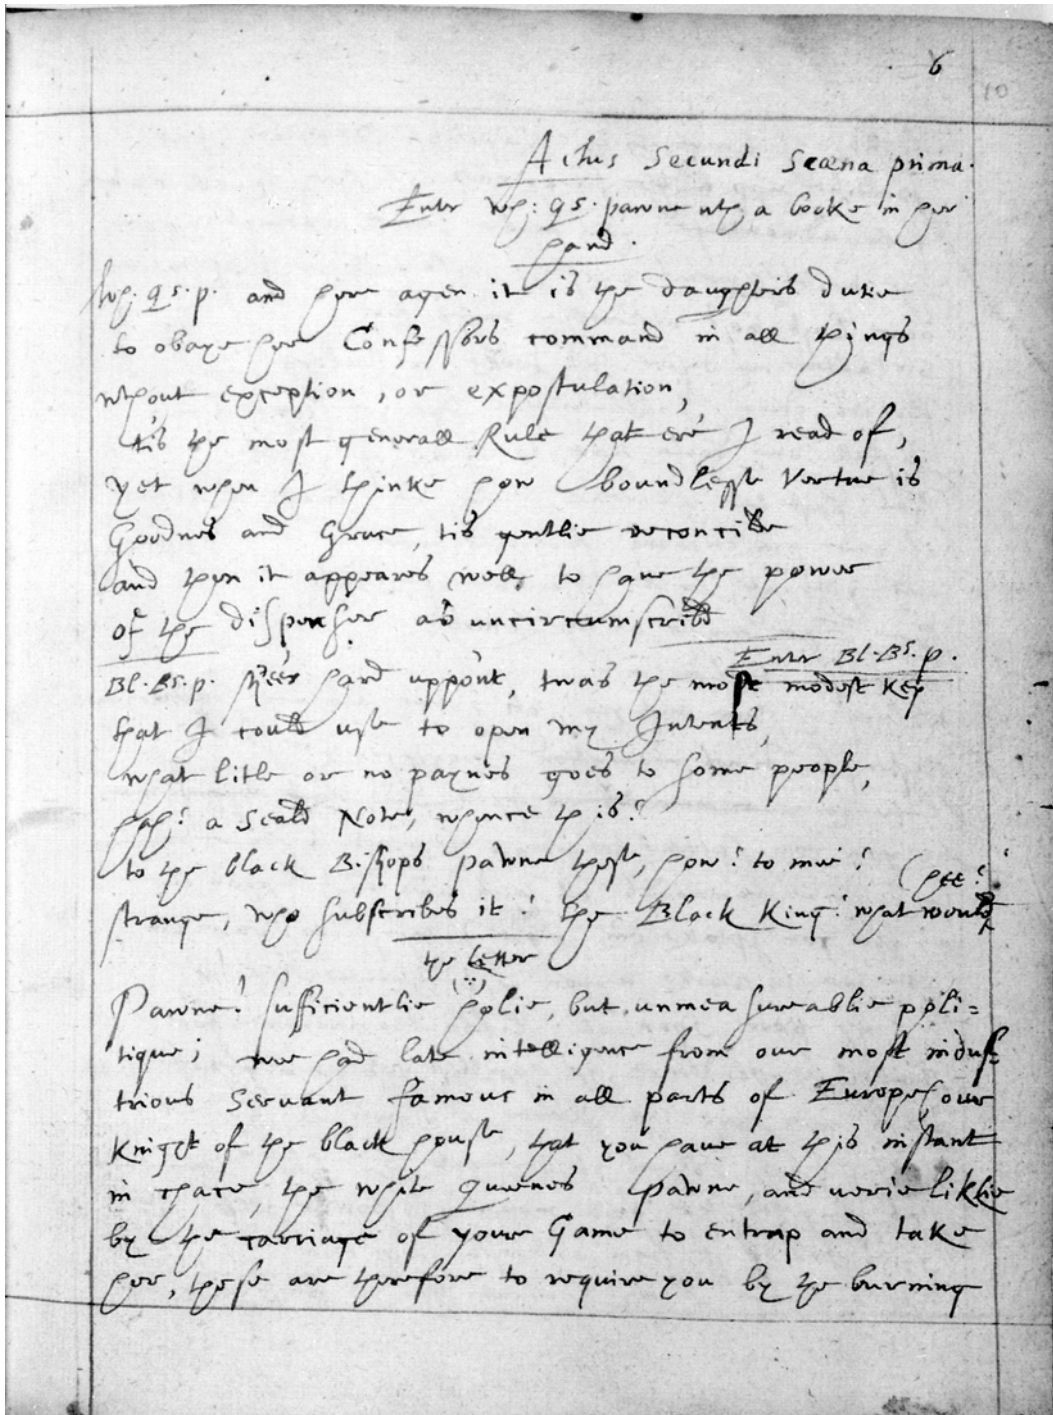 6
10
Actus Secundi Scæna prima.
Enter Wh: Qs. pawne wth a booke in her
hand.
Wh. Qs. p. and here agen it is the daughters dutie
to obaye her Confessors command in all things
wthout exception, or expostulation,
tis the most generall Rule that ere I read of,
yet when I thinke how boundlesse Vertue is
Goodnes and Grace, tis gentlie reconcilde
and then it appeares well, to haue the power
of the dispenser as uncircumscribd
Enter Bl. Bs. p.
Bl. Bs. p. shee's hard uppon't, twas the most modest Key
that I could use to open my Intents,
what litle or no paynes goes to some people,
hah? a Seald Note, whence this?
to the black Bishops pawne these, how? to mee?
strange, who subscribes it? the Black King? what would
(hee?
the Letter
Pawne! sufficientlie holie, but unmeasureablie poli=
tique; wee had late intelligence from our most indus-
trious Servant famous in all parts of Europe, our
Knight of the black house, that you haue at this instant
in chace, the white Queenes Pawne, and verie liklie
by the carriage of your Game to entrap and take
her, these are therefore to require you by the burning